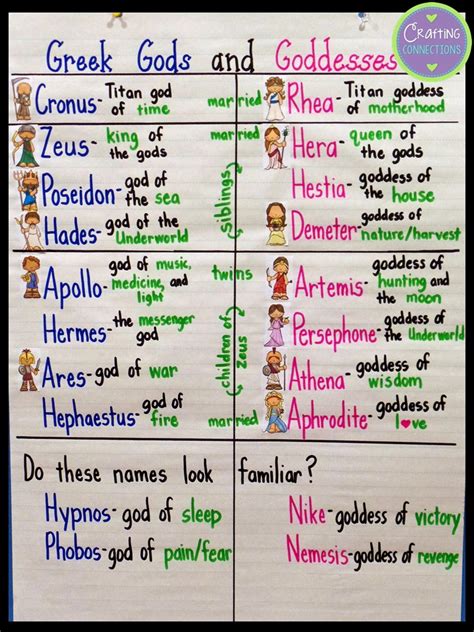 Crafting
CONNECTIONS
Greek Gods and Goddesses
Cronus- Titan god of time
married
Rhea- Titan goddess of motherhood
Zeus- king of the gods
married
Hera- queen of the gods
Poseidon- god of the sea
siblings
Hestia- goddess of the house
Hades- god of the Underworld
Demeter- goddess of nature/harvest
Apollo- god of music, medicine, and light
twins
Artemis- goddess of hunting and the moon
Hermes- the messenger god
children of Zeus
Persephone- goddess of the Underworld
Ares- god of war
Athena- goddess of wisdom
Hephaestus- god of fire
married
Aphrodite- goddess of love
Do these names look familiar?
Hypnos- god of sleep
Nike- goddess of victory
Phobos- god of pain/fear
Nemesis- goddess of revenge